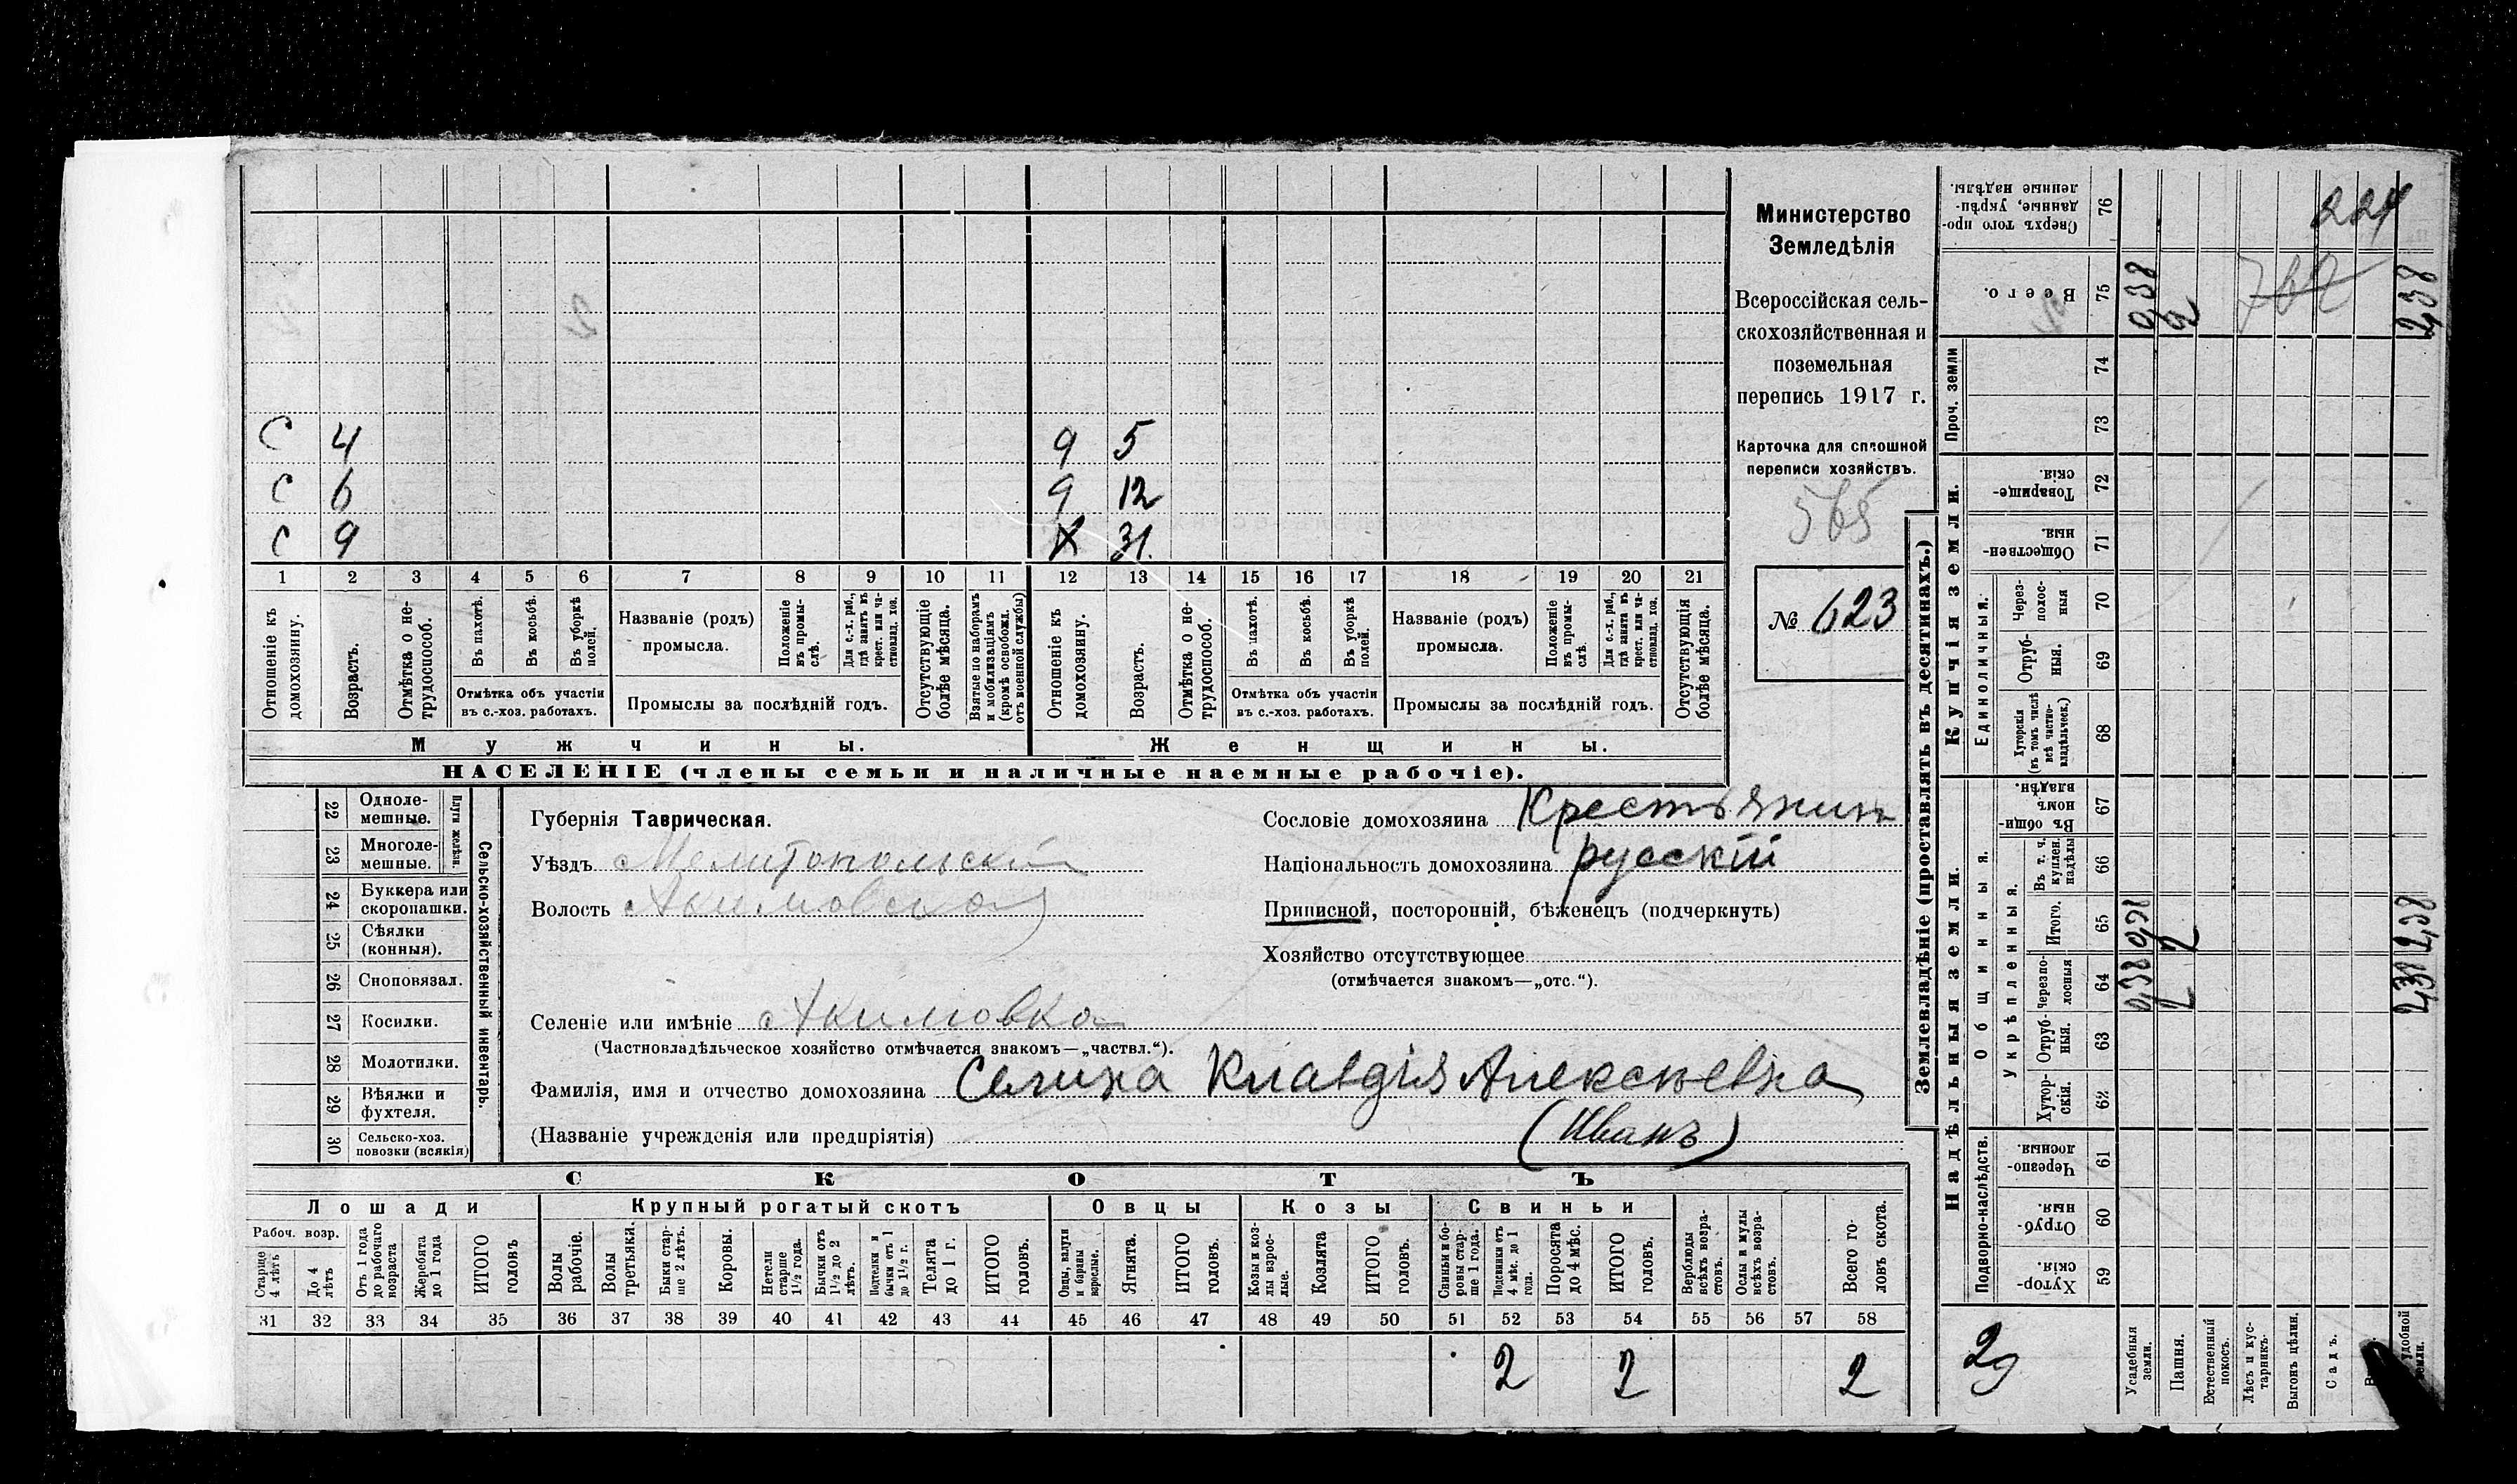 С 4 9 5
С 6 9 12
С 9 Х 31.
1 2 3 4 5 6 7 8 9 10 11 12 13 14 15 16 17 18 19 20 21
Отношеніе къ домохозяину.
Возрастъ.
Отмѣтка о нетрудоспособ.
Въ пахотѣ.
Въ косьбѣ.
Въ уборкѣ полей.
Отмѣтка объ участіи
въ с.-хоз. работахъ.
Названіе (родъ)
промысла.
Положеніе въ промыслѣ.
Для с.-х. раб., гдѣ занятъ въ крест. или частновлад. хоз.
Промыслы за послѣдній годъ.
Отсутствующіе болѣе мѣсяца.
Взятые по наборамъ и мобилизаціямъ (кромѣ освобожд. отъ военной службы)
Отношеніе къ домохозяину.
Возрастъ.
Отмѣтка о нетрудоспособ.
Въ пахотѣ.
Въ косьбѣ.
Въ уборкѣ полей.
Отмѣтка объ участіи
въ с.-хоз. работахъ.
Названіе (родъ)
промысла.
Положеніе въ промыслѣ.
Для с.-х. раб., гдѣ занята въ крест. или частновлад. хоз.
Промыслы за послѣдній годъ.
Отсутствующія болѣе мѣсяца.
Мужчины. Женщины.
НАСЕЛЕНІЕ (члены семьи и наличные наемные рабочіе).
Министерство
Земледѣлія
Всероссійская сель-
скохозяйственная и
поземельная
перепись 1917 г.
Карточка для сплошной
переписи хозяйствъ.
565
№ 623
22 Однолемешные.
23 Многолемешные.
Плуги желѣзн.
24 Буккера или скоропашки.
25 Сѣялки (конныя).
26 Сноповязал.
27 Косилки.
28 Молотилки.
29 Вѣялки и фухтеля.
30 Сельско-хоз. повозки (всякія)
Сельско-хозяйственный инвентарь.
Губернія Таврическая.
Уѣздъ Мелитопольскій
Волость Акимовская
Селеніе или имѣніе Акимовка
(Частновладѣльческое хозяйство отмѣчается знакомъ—„частвл.“).
Сословіе домохозяина Крестьянин
Національность домохозяина русскій
Приписной, посторонній, бѣженецъ (подчеркнуть)
Хозяйство отсутствующее
(отмѣчается знакомъ—„отс.“).
Фамилія, имя и отчество домохозяина Селина Клавдія Алексѣевна
(Названіе учрежденія или предпріятія) (Иванъ)
СКОТЪ
Лошади Крупный рогатый скотъ Овцы Козы Свиньи
Рабоч. возр.
Старше 4 лѣтъ
До 4 лѣтъ
Отъ 1 года до рабочаго возраста
Жеребята до 1 года
ИТОГО головъ
Волы рабочіе.
Волы третьяки.
Быки старше 2 лѣтъ.
Коровы.
Нетели старше 1½ года.
Бычки отъ 1½ до 2 лѣтъ.
Подтелки и бычки отъ 1 до 1½ г.
Телята до 1 г.
ИТОГО головъ.
Овцы, валухи и бараны взрослые.
Ягнята.
ИТОГО головъ.
Козы и козлы взрослые.
Козлята
ИТОГО головъ.
Свиньи и боровы старше 1 года.
Подсвинки отъ 4 мѣс. до 1 года.
Поросята до 4 мѣс.
ИТОГО головъ.
Верблюды всѣхъ возрастовъ.
Ослы и мулы всѣхъ возрастовъ.
Всего головъ скота.
31 32 33 34 35 36 37 38 39 40 41 42 43 44 45 46 47 48 49 50 51 52 53 54 55 56 57 58
2 2 2
Землевладѣніе (проставлять въ десятинахъ.)
Надѣльныя земли. Купчія земли. Проч. земли
Подворно-наслѣдств.
Общинныя.
Укрѣпленныя.
Единоличныя.
59 Хуторскія.
60 Отрубныя.
61 Черезполосныя
62 Хуторскія.
63 Отрубныя.
64 Черезполосныя
65 Итого.
66 Въ т. ч. куплен. надѣлы
67 Въ общинномъ владѣн.
68 Хуторскія (въ томъ числѣ всѣ частновладѣльческ.)
69 Отрубныя.
70 Черезполосныя
71 Общественныя.
72 Товарищескія.
73
74
75 Всего.
76 Сверхъ того проданные, укрѣпленные надѣлы.
Усадебныя земли. 0,38 0,38 0,38
Пашня. 2 2 2
Естественный покосъ.
Лѣсъ и кустарникъ.
Выгонъ цѣлин.
Садъ.
удобной земли. 2,38 2,38 2,38
762
224